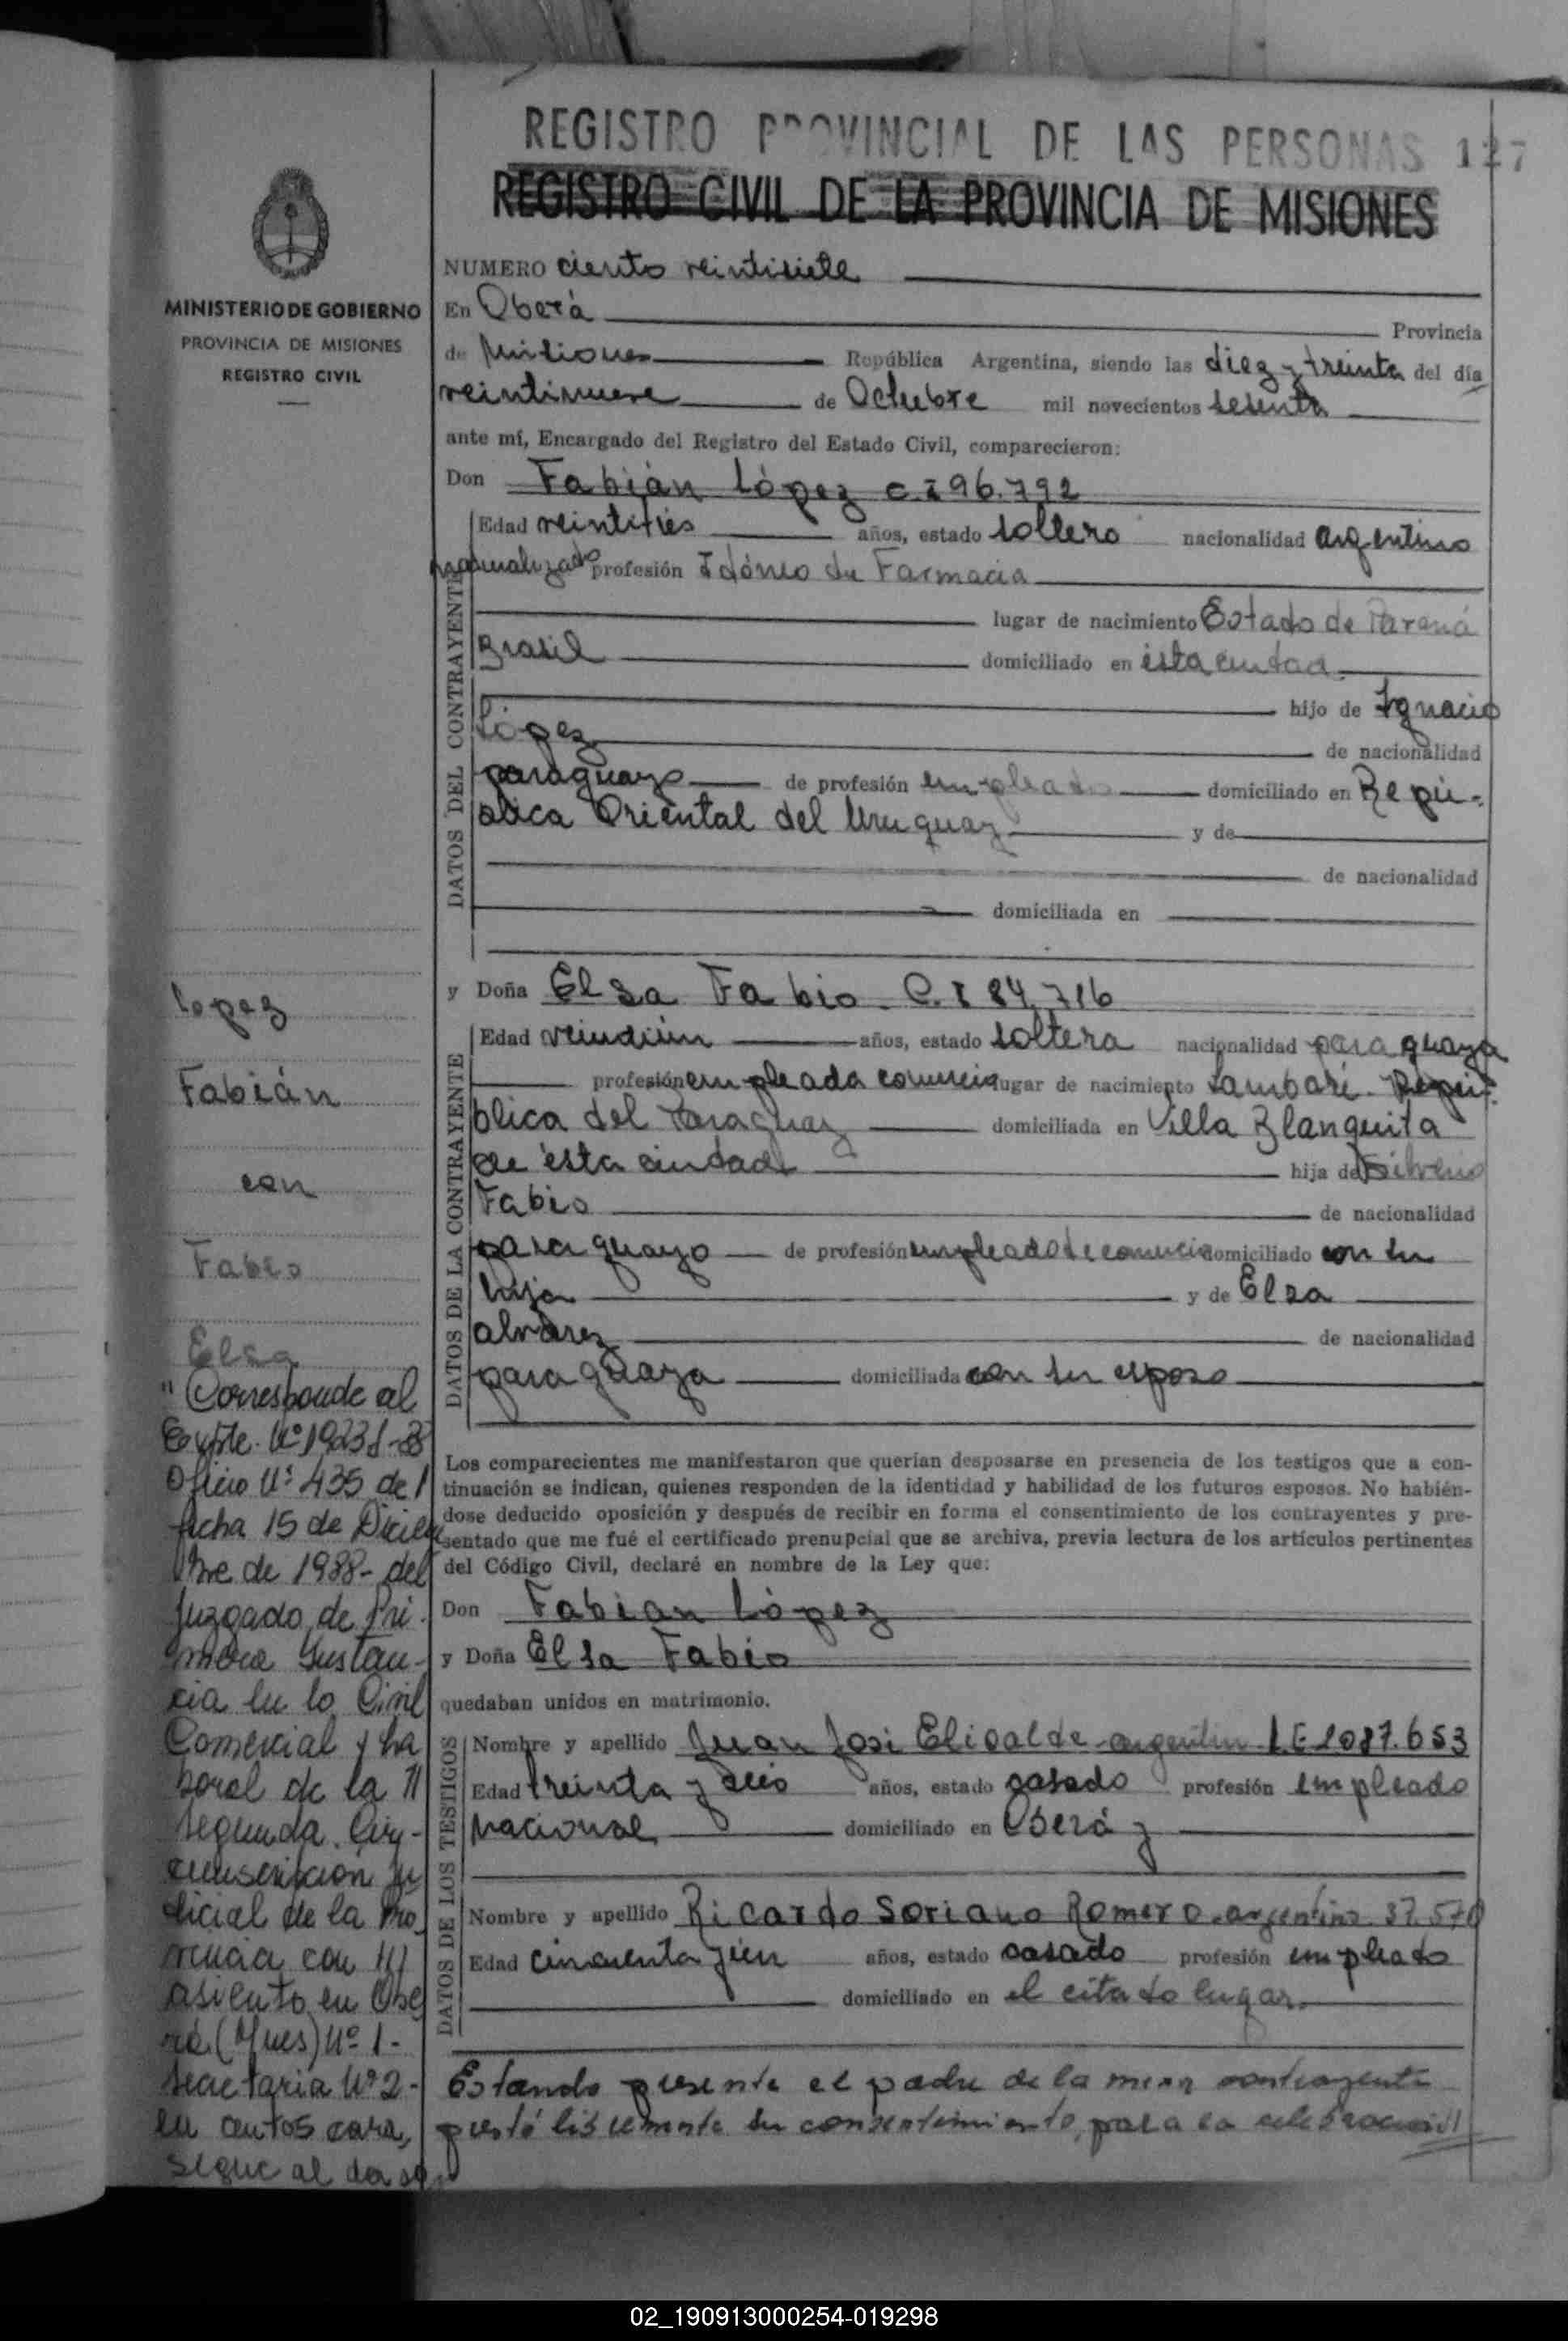 REGISTRO PROVINCIAL DE LAS PERSONAS 127
REGISTRO CIVIL DE LA PROVINCIA DE MISIONES
MINISTERIO DE GOBIERNO
PROVINCIA DE MISIONES
REGISTRO CIVIL
NUMERO ciento veintisiete
En Oberá Provincia
de Misiones República Argentina, siendo las diez y treinta del día
veintinueve de Octubre mil novecientos sesenta
ante mí, Encargado del Registro del Estado Civil, comparecieron:
Don Fabián López C.I 96.792
Edad veintitrés años, estado soltero nacionalidad argentino
profesión Idóneo de Farmacia
lugar de nacimiento Estado de Paraná
Brasil domiciliado en ésta ciudad
hijo de Ignacio
López de nacionalidad
paraguayo de profesión empleado domiciliado en Repú-
blica Oriental del Uruguay y de
de nacionalidad
domiciliada en
y Doña Elsa Fabio C.I 84.716
Edad veintiún años, estado soltera nacionalidad paraguaya
profesión empleada comercio lugar de nacimiento Lambaré Repú-
blica del Paraguay domiciliada en Villa Blanquita
de ésta ciudad hija de
Fabio de nacionalidad
paraguayo de profesión empleado de comercio domiciliado con su
hija y de Elsa
alvarez de nacionalidad
paraguaya domiciliada con su esposo
DATOS DEL CONTRAYENTE
DATOS DE LA CONTRAYENTE
Los comparecientes me manifestaron que querían desposarse en presencia de los testigos que a con-
tinuación se indican, quienes responden de la identidad y habilidad de los futuros esposos. No habién-
dose deducido oposición y después de recibir en forma el consentimiento de los contrayentes y pre-
sentado que me fué el certificado prenupcial que se archiva, previa lectura de los artículos pertinentes
del Código Civil, declaré en nombre de la Ley que:
Don Fabian López
y Doña Elsa Fabio
quedaban unidos en matrimonio.
DATOS DE LOS TESTIGOS
Nombre y apellido Juan José Elisalde argentino L.E 1087.653
Edad treinta y seis años, estado casado profesión empleado
nacional domiciliado en Oberá y
Nombre y apellido Ricardo Soriano Romero argentino 37.570
Edad cincuenta y un años, estado casado profesión empleado
domiciliado en el citado lugar.
Estando presente el padre de la contrayente
prestó libremente su consentimiento para la celebración
Lopez
Fabián
con
Fabio
Elsa
"Corresponde al
Expte. Nº 19231-88
Oficio Nº 435 de
fecha 15 de Diciem
bre de 1988- del
Juzgado de Pri-
mera Instan-
cia en lo Civil
Comercial y La
boral de la
Segunda Cir-
cunscripción Ju
dicial de la Pro
vincia con
asiento en Obe
rá (Mnes) Nº 1-
Secretaria Nº 2-
en autos cara,
sigue al dorso
02_190913000254-019298